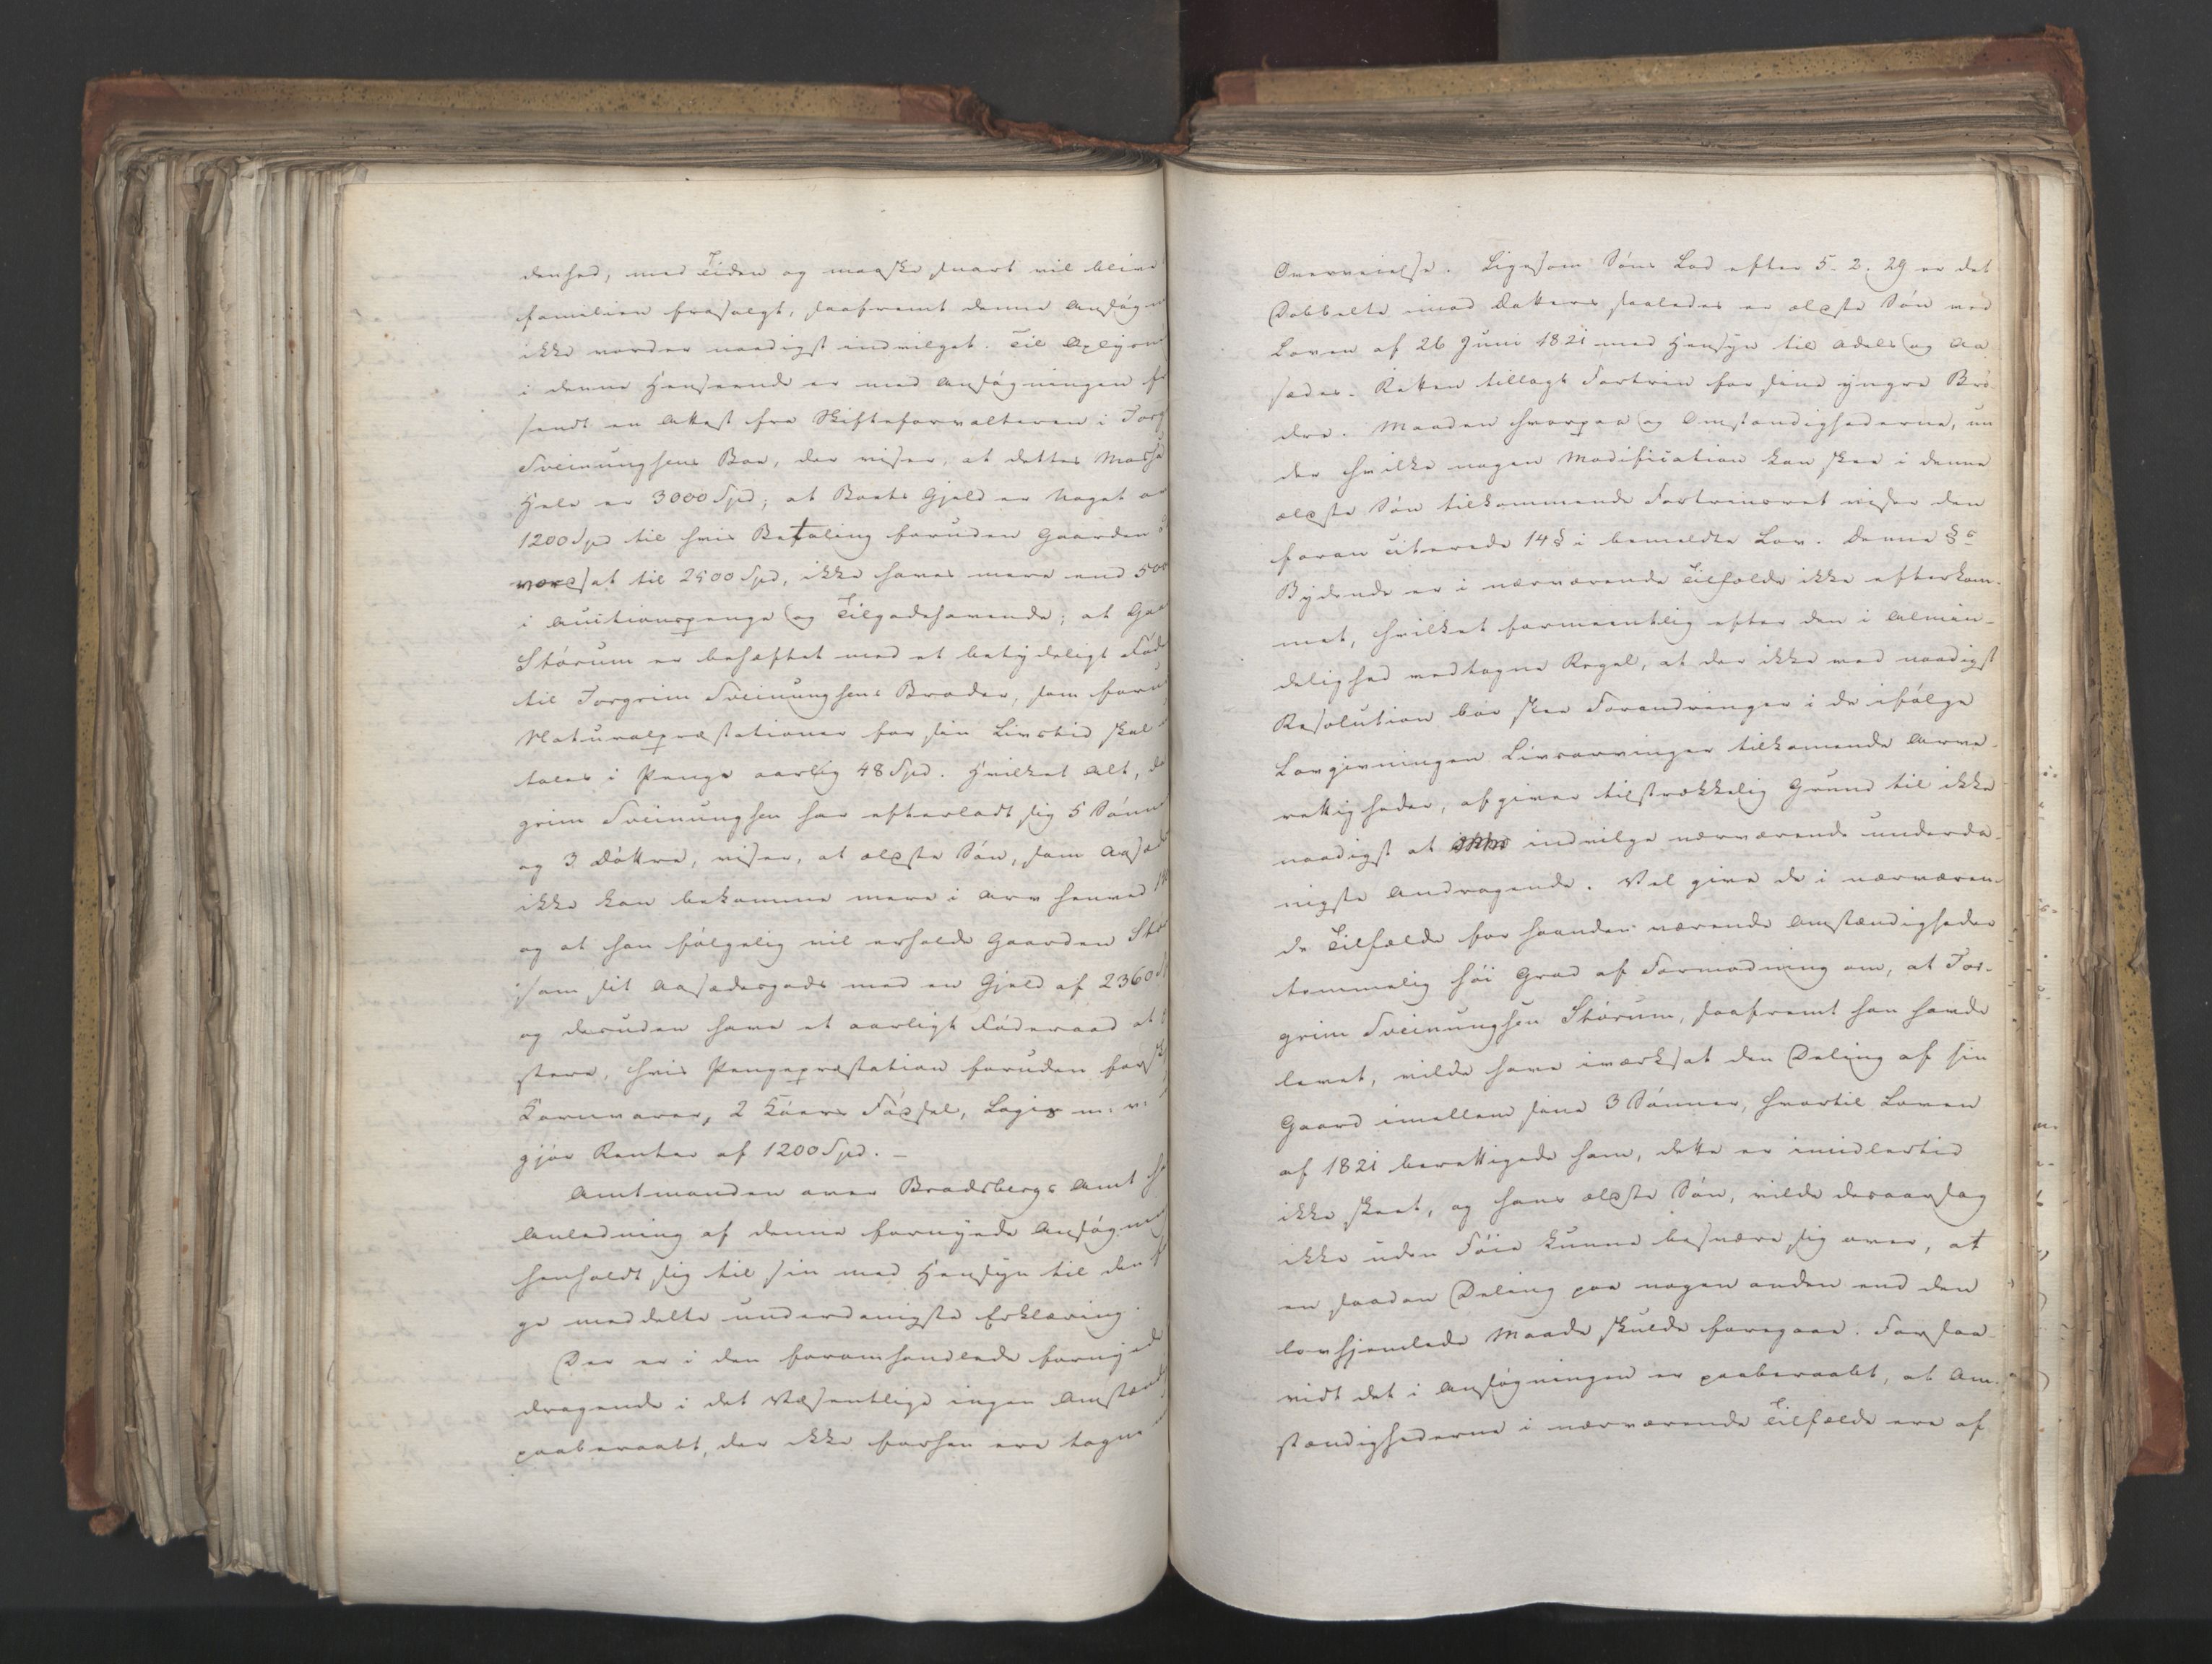 denhed, med Tiden og maaske snart vil blive
familien frasolgt, saafremt denne Ansøgn
ikke vorder naadigst indvilget. Til Oplysni
i denne Henseende er med Ansøgningen fr
sendt en Attest fra Skifteforvalteren i Torg
Sveinungsens Boe, der viser, at dettes Masse
Hele er 3000 Spd; at Boets Gjeld er noget ov
1200 Spd til hvis Betaling foruden Gaarden
værdsat til 2500 Spd, ikke haves mere end 500
i Auctionspenge og Tilgodehavende; at Gaa
Skorum er behæftet med et betydeligt Føde
til Torgrim Sveinungsens Broder, som foru
Naturalpræstationer for sin Livstid skal
tales i Penge aarlig 48 Spd. Hvilket Alt, da
grim Sveinungsen har efterladt sig 5 Sønn
og 3 Døttre, viser, at ældste Søn, som Aasæde
ikke kan bekomme mere i Arv henved 14
og at han følgelig vil erholde Gaarden Sko
som sit Aasædesgods med en Gjeld af 2360 S
og desuden have et aarligt Føderaad at
stere, hvis Pengepræstation foruden forsk
Kornvarer, 2 Køers Fødsel, Logis m: v:
gjør Renter af 1200 Spd. –
Amtmanden over Bradsbergs Amt ha
Anledning af denne fornyede Ansøgning
henholdt sig til sin med Hensyn til den f
ge meddelte underdanigste Erklæring.
Der er i den foromhandlede fornyede
dragende i det Væsentlige ingen Omstænd
paaberaabt, der ikke forhen ere tagne
Overveielse. Ligesom Søns Lod efter 5-2-29 er det
Dobbelte imod Datters saaledes er ældste Søn ved
Loven af 26 Juni 1821 med Hensyn til Odels og Aa
sædes-Retten tillagt Fortrin for sine yngre Brø-
dre. Maaden hvorpaa og Omstændighederne, un
der hvilke nogen Modification kan skee i denne
ældste Søn tilkommende Fortrinsret viser den
foran citerede 14 § i bemeldte Lov. Denne §s
Bydende er i nærværende Tilfælde ikke efterkom-
met, hvilket formeentlig efter den i Almin-
delighed vedtagne Regel, at der ikke ved naadigst
Resolution bør skee Forandringer i de ifølge
Lovgivningen Livsarvinger tilkomende Arve-
rettigheder, afgiver tilstrækkelig Grund til ikke
naadigst at indvilge nærværende underda-
nigste Andragende. Vel give de i nærværen-
de Tilfælde for haanden værende Omstændigheder
temmelig høi Grad af Formodning om, at Tor-
grim Sveinungsen Skorum, saafremt han havde
levet, vilde have iværksat den Deling af sin
Gaard imellem sine 3 Sønner, hvortil Loven
af 1821 berettigede ham, dette er imidlertid
ikke skeet, og hans ældste Søn, vilde desaarsag
ikke uden Føie kunne besvære sig over, at
en saadan Deling paa nogen anden end den
lovhjemlede Maade skulde foregaae. Forsaa
vidt det i Ansøgningen er paaberaabt, at Om-
stændighederne i nærværende Tilfælde ere af